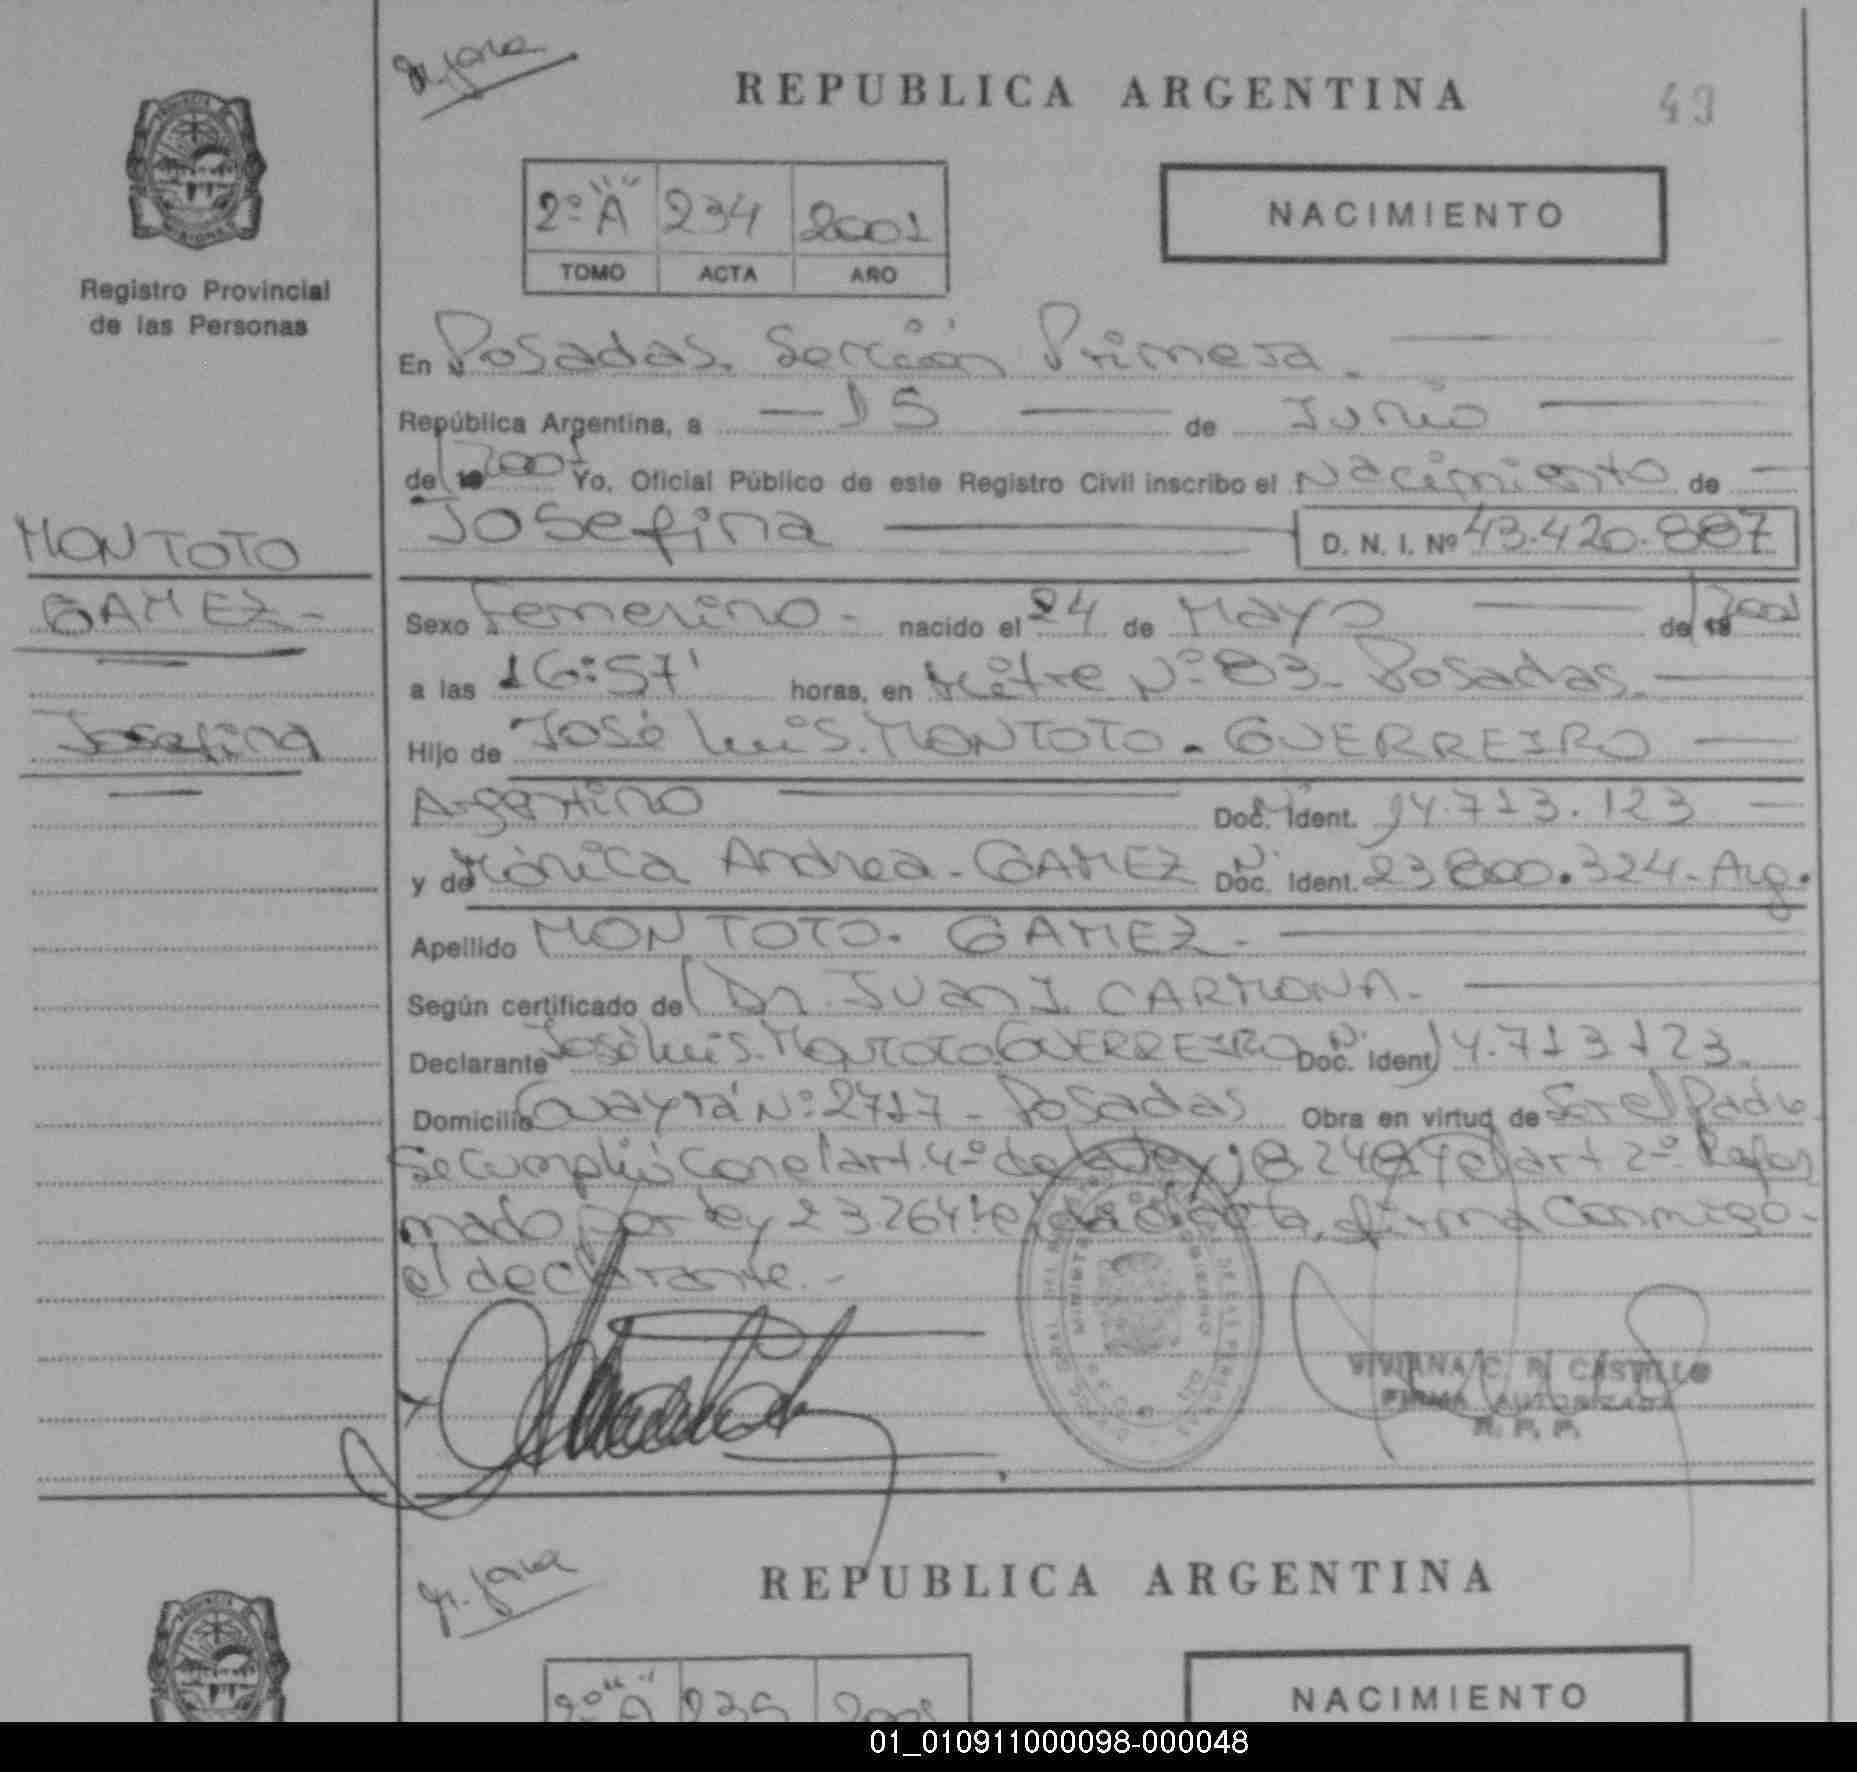 REPUBLICA ARGENTINA
49
2º "A" 234 2001
TOMO ACTA AÑO
NACIMIENTO
Registro Provincial
de las Personas
En Posadas. Sección Primera.
República Argentina, a 15 de Junio
de 19 2001 Yo, Oficial Público de este Registro Civil inscribo el Nacimiento de
Josefina D. N. I. Nº 43.420.887
MONTOTO
GAMEZ-
Josefina
Sexo Femenino - nacido el 24 de Mayo de 19 2001
a las 16:57' horas, en Mitre Nº 83- Posadas.
Hijo de José Luis. MONTOTO - GUERREIRO
Argentino Doc. Ident. 14.713.123
y de Mónica Andrea - GAMEZ Doc. Ident. 23.800.324- Arg.
Apellido MONTOTO. GAMEZ -
Según certificado de Dr. Juan J. CARMONA.
Declarante José Luis. MONTOTO. GUERREIRO Doc. Ident 14.713123.
Domicilio Guayrá Nº 2717- Posadas Obra en virtud de Ser el Padre.
Se cumplió con el art. 4º de la Ley 18.248 y el art 2º. Refor
mado por ley 23.264. leída el acta, firma conmigo-
el declarante.-
MINISTERIO GOBIERNO
VIVIANA C. R. CASTILLO
FIRMA AUTORIZADA
R. P. P.
REPUBLICA ARGENTINA
2º "A" 235 2001
NACIMIENTO
01_010911000098-000048